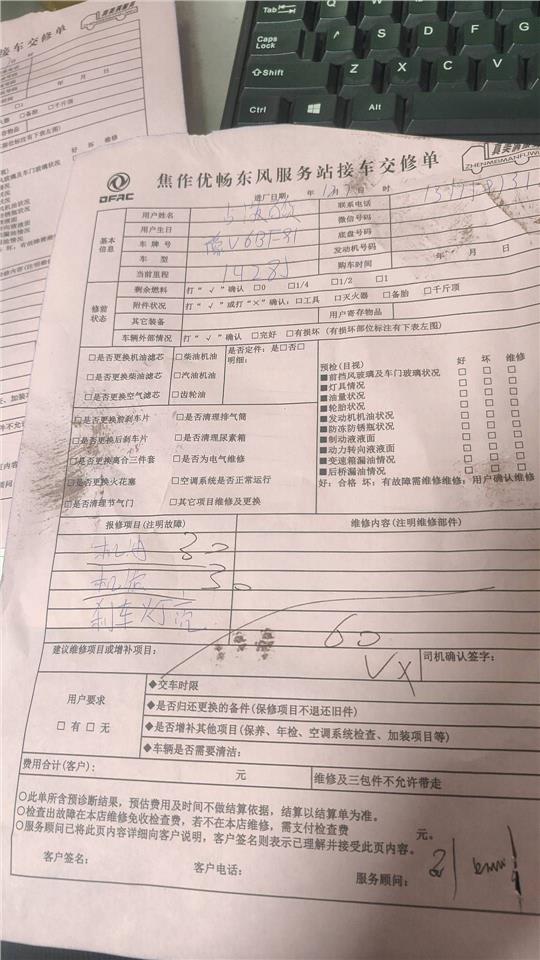 接车交修单
Tab
Caps Lock
A
S
D
F
G
Shift
Z
X
C
V
Ctrl
Alt
DFAC
焦作优畅东风服务站接车交修单
真美满服务
ZHENMEIMANFUWU
进厂日期: 年 月 日 时
基本信息
用户姓名
联系电话
用户生日
微信号码
车 牌 号
V6BF81
底盘号码
车 型
发动机号码
当前里程
购车时间 年 月 日
修前状态
剩余燃料 打“√”确认 □0 □1/4 □1/2 □1
附件状况 打“√”或打“×”确认: □工具 □灭火器 □备胎 □千斤顶
其它装备 用户寄存物品
车辆外部情况 打“√”确认 □完好 □有损坏 (有损坏部位标注有下表左图)
□是否更换机油滤芯 □柴油机油 是否定件: 是□否□
□是否更换柴油滤芯 □汽油机油 明细:
□是否更换空气滤芯 □齿轮油
□是否更换前刹车片 □是否清理排气筒
□是否更换后刹车片 □是否清理尿素箱
□是否更换离合三件套 □是否为电气维修
□是否更换火花塞 □空调系统是否正常运行
□是否清理节气门 □其它项目维修及更换
预检(目视) 好 坏 维修
■前挡风玻璃及车门玻璃状况 □ □ □
■灯具情况 □ □ □
■油量状况 □ □ □
■轮胎状况 □ □ □
■发动机机油状况 □ □ □
■防冻防锈瓶状况 □ □ □
■制动液液面 □ □ □
■动力转向液液面 □ □ □
■变速箱漏油情况 □ □ □
■后桥漏油情况 □ □ □
好: 合格 坏: 有故障需维修维修: 用户确认维修
报修项目(注明故障) 维修内容(注明维修部件)
机油 30
30
刹车灯亮
60
建议维修项目或增补项目:
司机确认签字:
用户要求
□有 □无
◆交车时限
◆是否归还更换的备件(保修项目不退还旧件)
◆是否增补其他项目(保养、年检、空调系统检查、加装项目等)
◆车辆是否需要清洁:
费用合计(客户): 元 维修及三包件不允许带走
○此单所含预诊断结果,预估费用及时间不做结算依据,结算以结算单为准。
○检查出故障在本店维修免收检查费,若不在本店维修,需支付检查费 元。
○服务顾问已将此页内容详细向客户说明,客户签名则表示已理解并接受此页内容。
客户签名: 客户电话: 服务顾问: